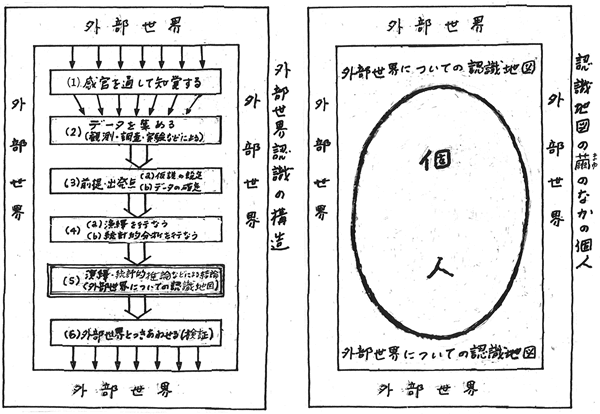 外部世界
外部世界
外部世界
(1) 感官を通して知覚する
(2) データを集める
(観測・調査・実験などによる)
(3) 前提・出発点 (a) 仮説の設定
(b) データの確定
(4) (a) 演繹を行なう
(b) 統計的分析を行なう
(5) 演繹・統計的推論などによる結論
(外部世界についての認識地図)
(6) 外部世界とつきあわせる(検証)
外部世界
外部世界認識の構造
外部世界
外部世界
外部世界
外部世界についての認識地図
個人
外部世界についての認識地図
外部世界
認識地図の繭のなかの個人
まゆ